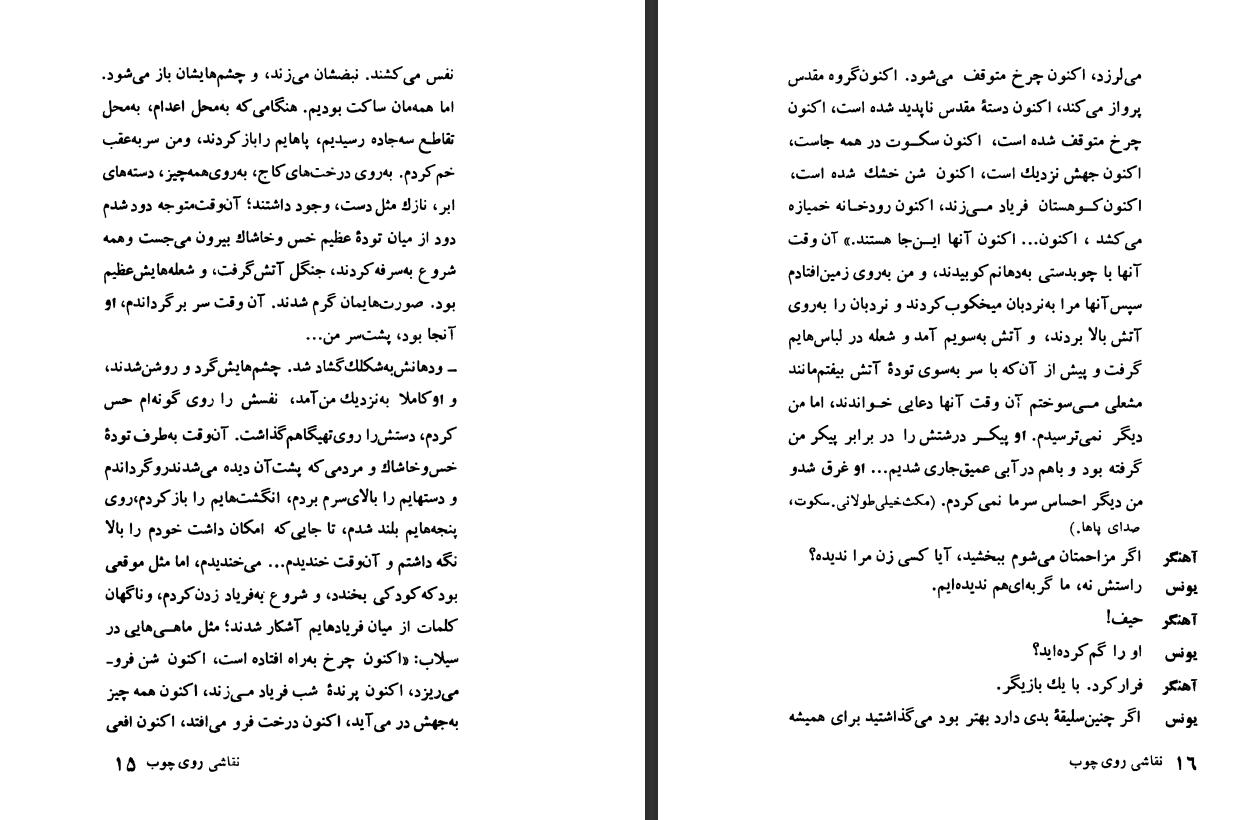 نفس می‌کشند. نبضشان می‌زند، و چشم‌هایشان باز می‌شود.
اما همه‌مان ساکت بودیم. هنگامی‌که به‌محل اعدام، به‌محل
تقاطع سه‌جاده رسیدیم، پاهایم راباز کردند، ومن سربه‌عقب
خم‌کردم. به‌روی درخت‌های‌کاج، به‌روی‌همه‌چیز، دسته‌های
ابر، نازك مثل دست، وجود داشتند؛ آن‌وقت‌متوجه دود شدم
دود از میان تودهٔ عظیم خس وخاشاك بیرون می‌جست وهمه
شروع به‌سرفه‌کردند، جنگل آتش‌گرفت، و شعله‌هایش‌عظیم
بود. صورت‌هایمان گرم شدند. آن وقت سر برگرداندم، او
آنجا بود، پشت‌سر من...
ـ ودهانش‌به‌شکلك‌گشاد شد. چشم‌هایش‌گرد و روشن‌شدند،
و اوکاملا به‌نزدیك من‌آمد، نفسش را روی گونه‌ام حس
کردم، دستش‌را روی‌تهیگاهم‌گذاشت. آن‌وقت به‌طرف تودهٔ
خس‌وخاشاك و مردمی‌که پشت‌آن دیده می‌شدندروگرداندم
و دستهایم را بالای‌سرم بردم، انگشت‌هایم را بازکردم،روی
پنجه‌هایم بلند شدم، تا جایی‌که امکان داشت خودم را بالا
نگه داشتم و آن‌وقت خندیدم... می‌خندیدم، اما مثل موقعی
بودکه‌کودکی بخندد، و شروع به‌فریاد زدن‌کردم، وناگهان
کلمات از میان فریادهایم آشکار شدند؛ مثل ماهـی‌هایی در
سیلاب: «اکنون چرخ به‌راه افتاده است، اکنون شن فروـ
می‌ریزد، اکنون پرندهٔ شب فریاد مـی‌زند، اکنون همه چیز
به‌جهش در می‌آید، اکنون درخت فرو می‌افتد، اکنون افعی
نقاشی روی چوب ۱۵
می‌لرزد، اکنون چرخ متوقف می‌شود. اکنون‌گروه مقدس
پرواز می‌کند، اکنون دستهٔ مقدس ناپدید شده است، اکنون
چرخ متوقف شده است، اکنون سکـوت در همه جاست،
اکنون جهش نزدیك است، اکنون شن خشك شده است،
اکنون‌کـوهستان فریاد مـی‌زند، اکنون رودخـانه خمیازه
می‌کشد ، اکنون... اکنون آنها ایـن‌جا هستند.» آن وقت
آنها با چوبدستی به‌دهانم‌کوبیدند، و من به‌روی زمین‌افتادم
سپس‌آنها مرا به‌نردبان میخکوب‌کردند و نردبان را به‌روی
آتش بالا بردند، و آتش به‌سویم آمد و شعله در لباس‌هایم
گرفت و پیش از آن‌که با سر به‌سوی تودهٔ آتش بیفتم‌مانند
مشعلی مـی‌سوختم آن وقت آنها دعایی خـواندند، اما من
دیگر نمی‌ترسیدم. او پیکـر درشتش را در برابر پیکر من
گرفته بود و باهم درآبی عمیق‌جاری شدیم... او غرق شدو
من دیگر احساس سرما نمی‌کردم. (مکث‌خیلی‌طولانی.سکوت،
صدای پاها.)
آهنگر اگر مزاحمتان می‌شوم ببخشید، آیا کسی زن مرا ندیده؟
یونس راستش نه، ما گربه‌ای‌هم ندیده‌ایم.
آهنگر حیف!
یونس او را گم‌کرده‌اید؟
آهنگر فرارکرد. با یك بازیگر.
یونس اگر چنین‌سلیقهٔ بدی دارد بهتر بود می‌گذاشتید برای همیشه
۱۶ نقاشی روی چوب